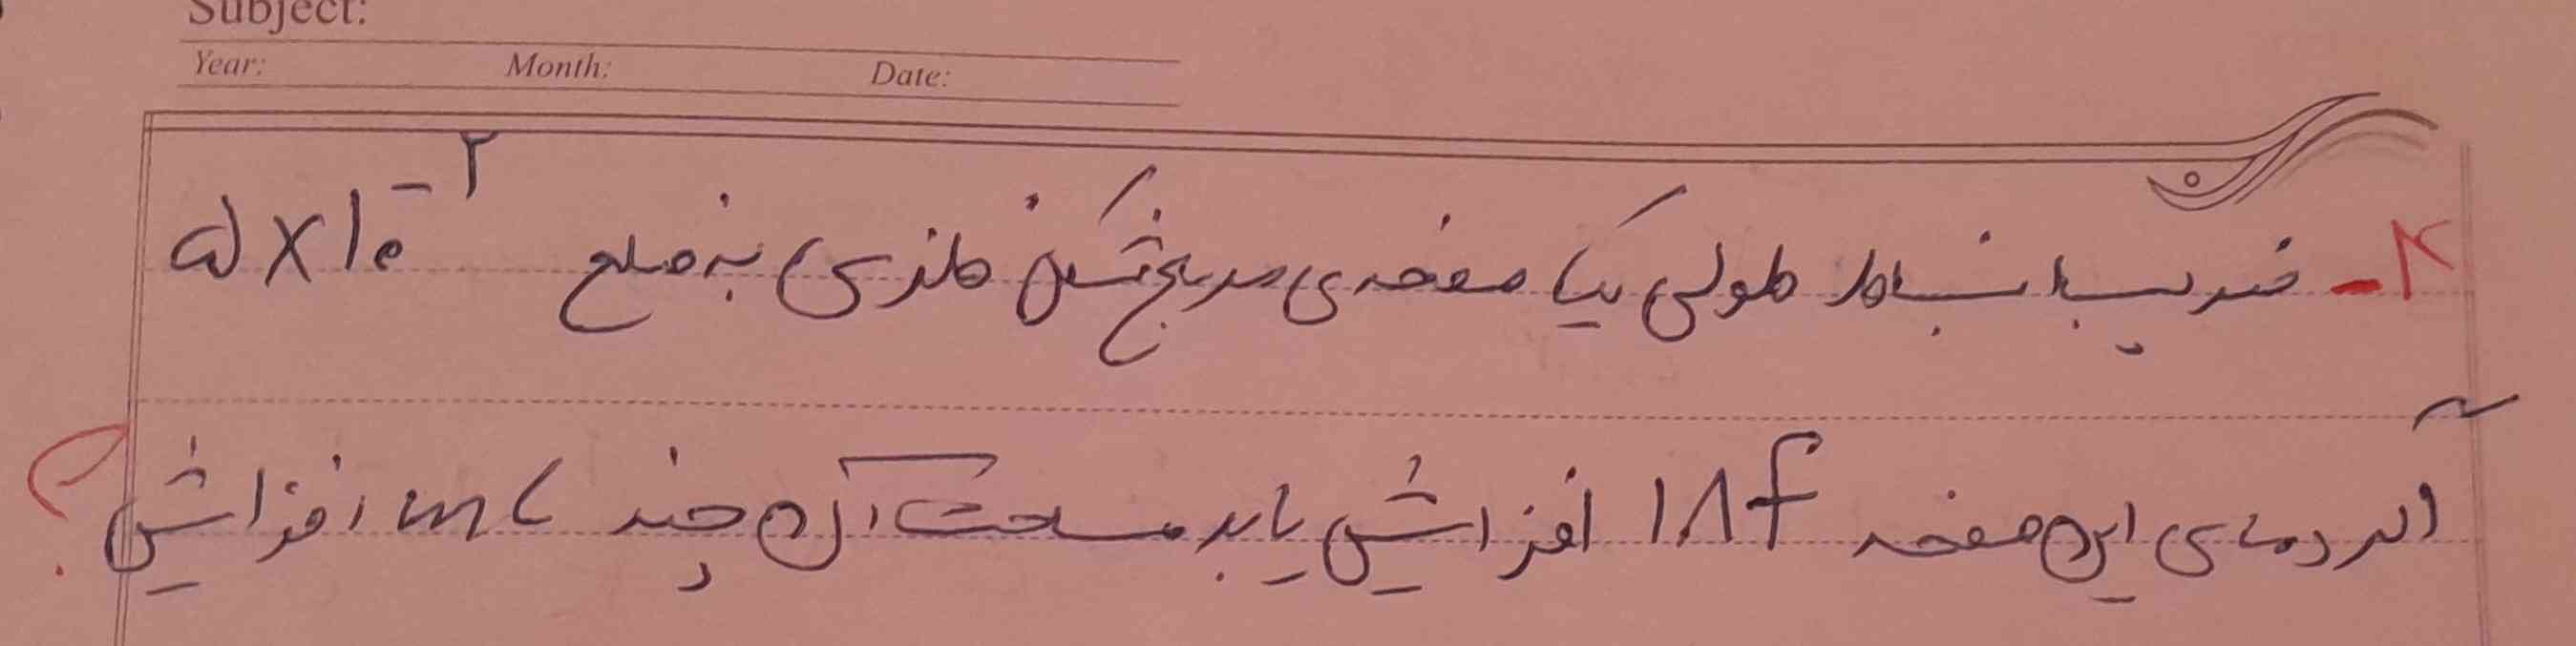 Subject:
Year: Month: Date:
۴- ضریب انبساط طولی یک صفحه‌ی مربع شکل فلزی به ضلع ۵×۱۰⁻²
اگر دمای این صفحه ۱۸f افزایش یابد مساحت آن چند m۲ افزایش؟